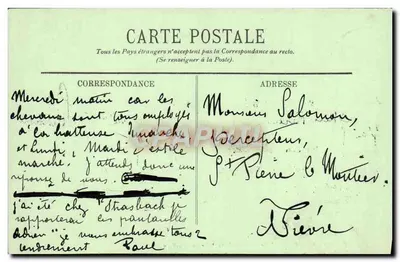 CARTE POSTALE
Tous les Pays étrangers n'acceptent pas la Correspondance au recto.
(Se renseigner à la Poste).
CORRESPONDANCE
Mercredi matin car les
chevaux sont tous employés
à la batteuse
et Lundi, Mardi
marché. J'attends donc une
réponse de vous.
j'ai été chez Strasbach je
rapporterai les pantoufles
"je vous embrasse tous 2
tendrement Paul
ADRESSE
Monsieur Salomon,
Percepteur,
St Pierre le Moutier
Nièvre